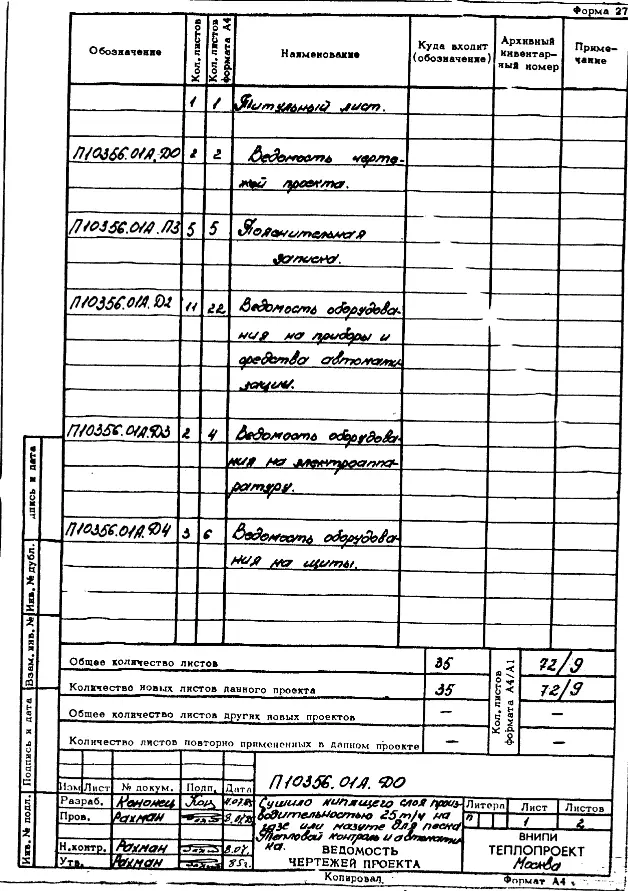 Форма 27
Обозначение Кол. листов Кол. листов формата А4 Наименование Куда входит (обозначение) Архивный инвентарный номер Примечание
1 1 Титульный лист.
П10356.01А.Д0 2 2 Ведомость черте-
жей проекта.
П10356.01А.ПЗ 5 5 Пояснительная
записка.
П10356.01А.Д2 11 22 Ведомость оборудова-
ния на приборы и
средства автомати-
зации.
П10356.01А.Д3 2 4 Ведомость оборудова-
ния на электроаппа-
ратуру.
П10356.01А.Д4 3 6 Ведомость оборудова-
ния на щиты.
Общее количество листов 35 Кол. листов формата А4/А1 72/9
Количество новых листов данного проекта 35 72/9
Общее количество листов других новых проектов — —
Количество листов повторно примененных в данном проекте — —
П10356.01А.Д0
Изм Лист № докум. Подп. Дата
Разраб. Кононец
Пров. Рахман
Н.контр. Рахман
Утв. Рахман 85г.
Сушило кипящего слоя произ-
водительностью 25 т/ч на
газе или мазуте для песка
Тепловой контроль и автомати-
ка.
ВЕДОМОСТЬ
ЧЕРТЕЖЕЙ ПРОЕКТА
Литера Лист Листов
1 2
ВНИПИ
ТЕПЛОПРОЕКТ
Москва
Копировал Формат А4
Инв. № подл. Подпись и дата Взам. инв. № Инв. № дубл. дпись и дата